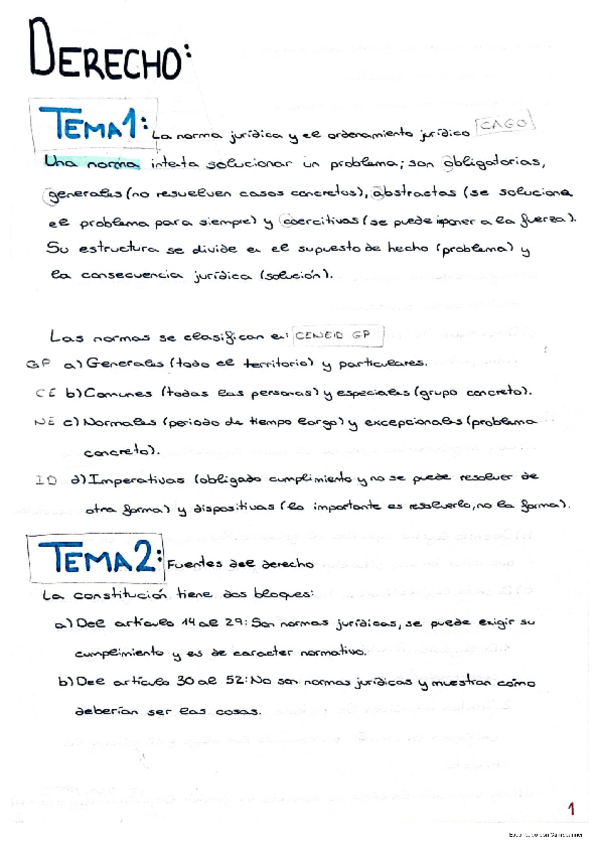 DERECHO:
TEMA 1: La norma jurídica y el ordenamiento jurídico CAGO
Una norma intenta solucionar un problema; son obligatorias,
generales (no resuelven casos concretos), abstractas (se soluciona
el problema para siempre) y coercitivas (se puede imponer a la fuerza).
Su estructura se divide en el supuesto de hecho (problema) y
la consecuencia jurídica (solución).
Las normas se clasifican en: CENEID GP
GP a) Generales (todo el territorio) y particulares.
CE b) Comunes (todas las personas) y especiales (grupo concreto).
NE c) Normales (periodo de tiempo largo) y excepcionales (problema
concreto).
ID d) Imperativas (obligado cumplimiento y no se puede resolver de
otra forma) y dispositivas (lo importante es resolverlo, no la forma).
TEMA 2: Fuentes del derecho
La constitución tiene dos bloques:
a) Del artículo 14 al 29: Son normas jurídicas, se puede exigir su
cumplimiento y es de caracter normativo.
b) Del artículo 30 al 52: No son normas jurídicas y muestran cómo
deberían ser las cosas.
1